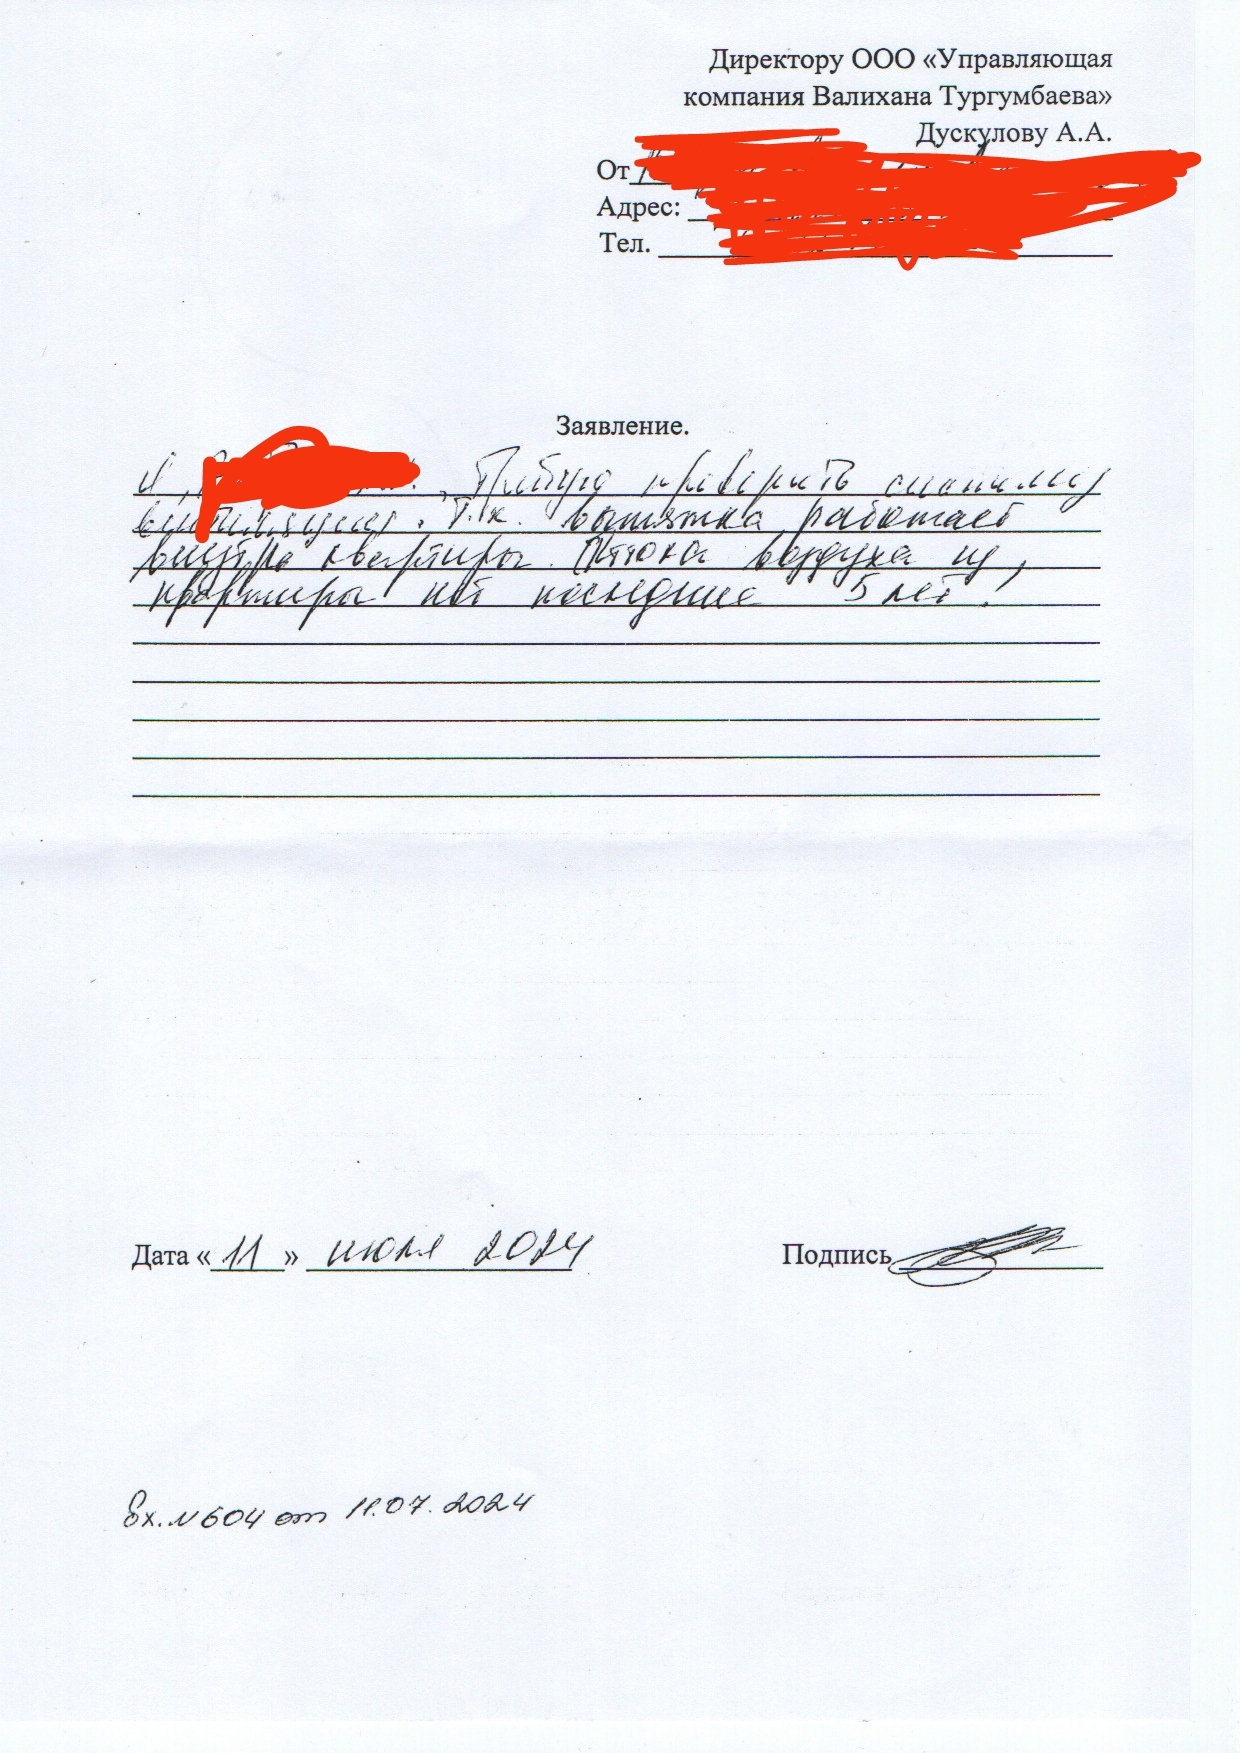 Директору ООО «Управляющая
компания Валихана Тургумбаева»
Дускулову А.А.
От
Адрес:
Тел.
Заявление.
Я, , Требую проверить
вентиляцию. Т.к. вытяжка работает
внутрь квартиры. Оттока воздуха из
квартиры нет последние 5 лет!
Дата «11» июля 2024 Подпись
Вх. N604 от 11.07.2024